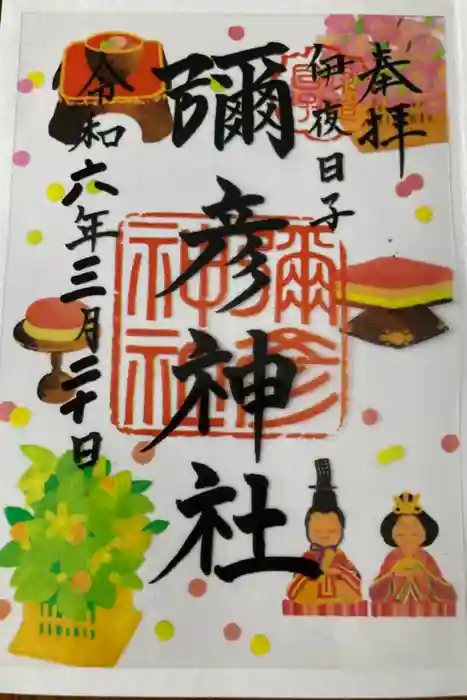 奉拝
伊夜日子
彌彦神社
彌彦
神社
令和六年三月二十日